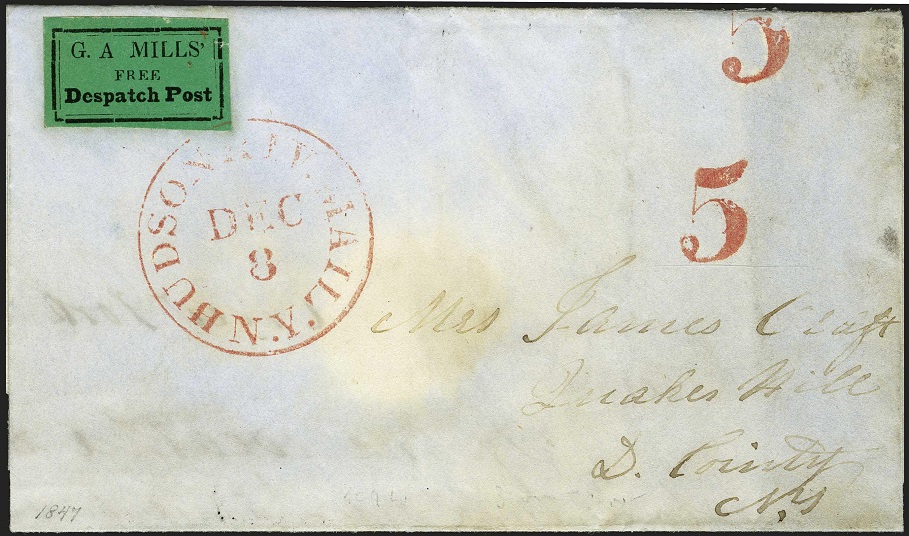 G. A MILLS'
FREE
Despatch Post
5
5
HUDSON RIV. MAIL. N.Y.
DEC
8
Mrs James Craft
Quaker Hill
D. County
NY
1847